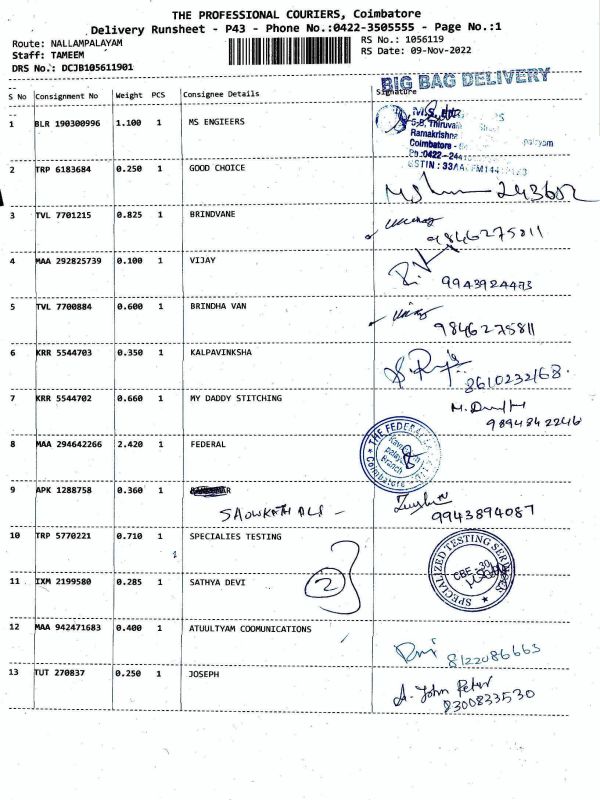 THE PROFESSIONAL COURIERS, Coimbatore
Delivery Runsheet - P43 - Phone No.:0422-3505555 - Page No.:1
Route: NALLAMPALAYAM RS No.: 1056119
Staff: TAMEEM RS Date: 09-Nov-2022
DRS No.: DCJB105611901
BIG BAG DELIVERY
S No Consignment No Weight PCS Consignee Details Signature
1 BLR 190300996 1.100 1 MS ENGIEERS
Ramakrishna
Coimbatore
2 TRP 6183684 0.250 1 GOOD CHOICE
243602
3 TVL 7701215 0.825 1 BRINDVANE
9846275811
4 MAA 292825739 0.100 1 VIJAY
9943924473
5 TVL 7700884 0.600 1 BRINDHA VAN
9846275811
6 KRR 5544703 0.350 1 KALPAVINKSHA
8610232168
7 KRR 5544702 0.660 1 MY DADDY STITCHING
9894842246
8 MAA 294642266 2.420 1 FEDERAL
THE FEDERAL
Branch
Coimbatore
9 APK 1288758 0.360 1
SAOWKATH ALI -
9943894087
10 TRP 5770221 0.710 1 SPECIALIES TESTING
SPECIALIZED TESTING SERVICES
CBE - 30
11 IXM 2199580 0.285 1 SATHYA DEVI
2
12 MAA 942471683 0.400 1 ATUULTYAM COOMUNICATIONS
8122086663
13 TUT 270837 0.250 1 JOSEPH
A. John Peter
8300833530